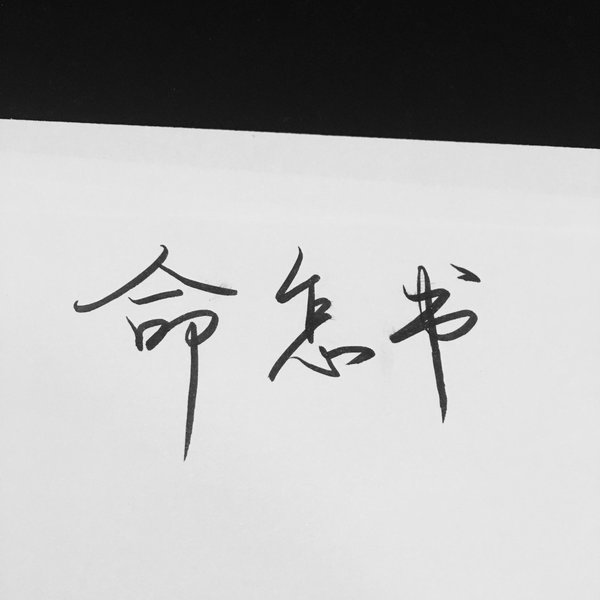 命怎书